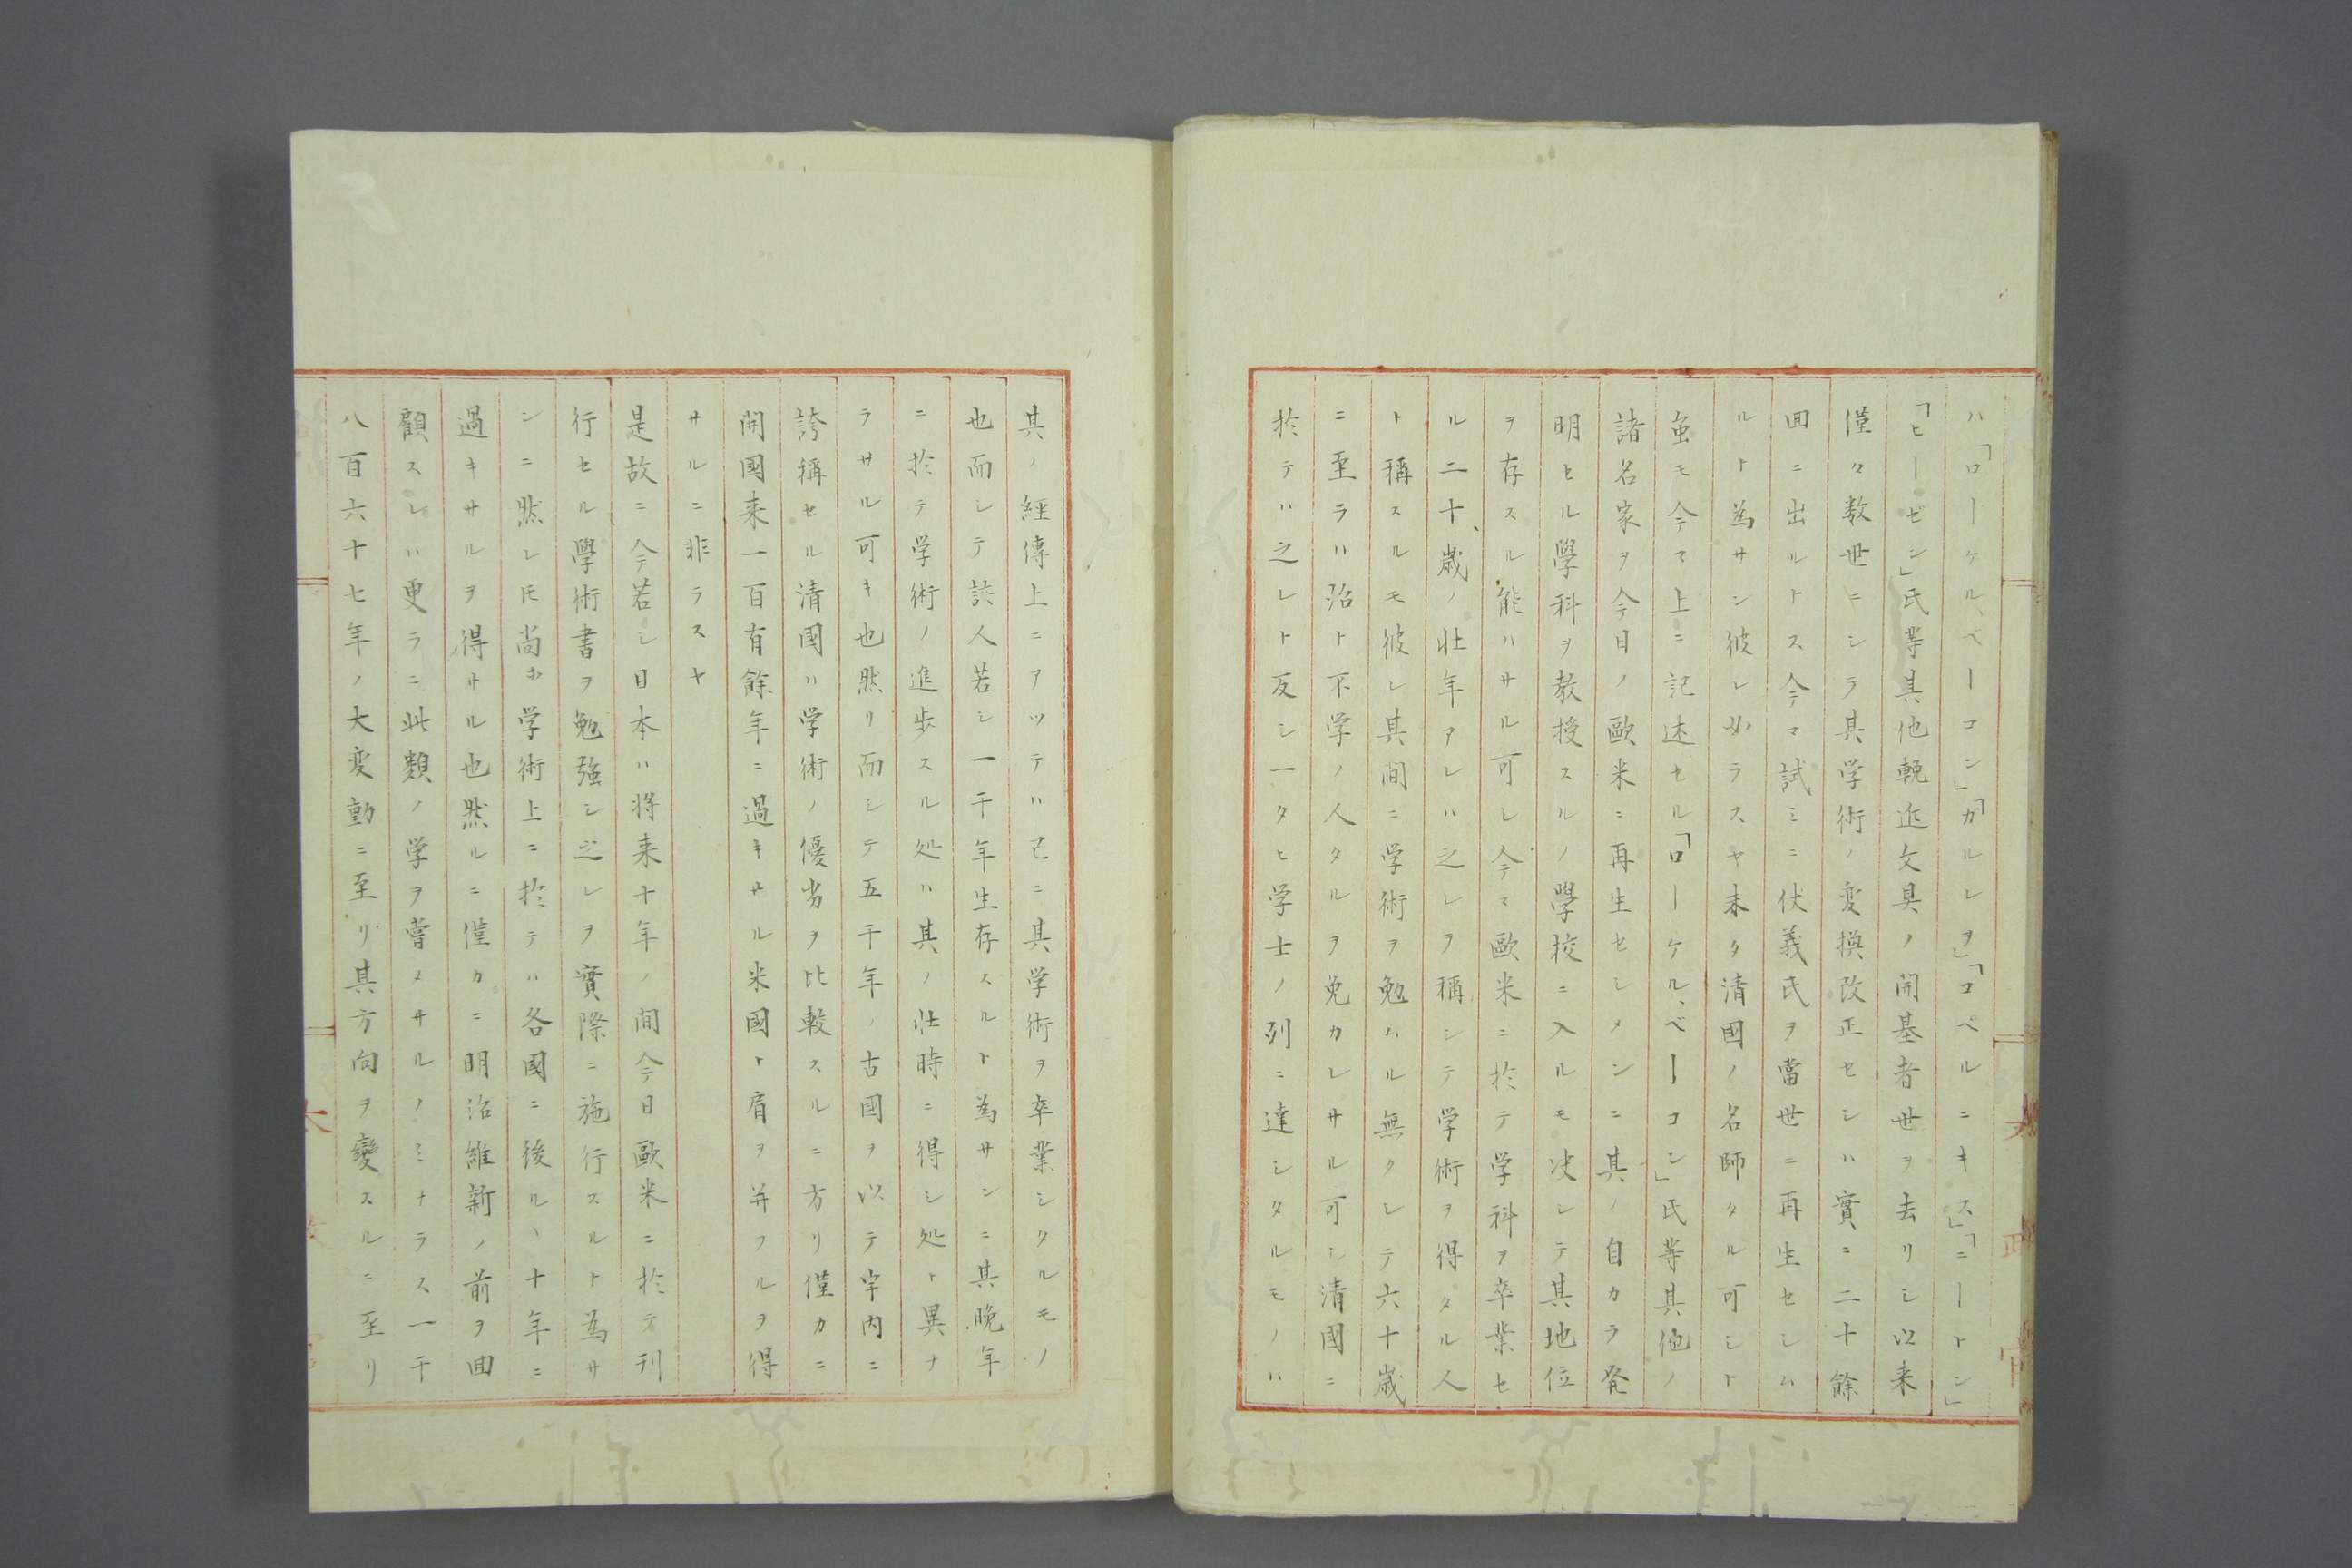 ハ「ローケルベーコン」「ガルレヲ」「コペルニキス」「ニートン」
「ヒーゼン」氏等其他輓近文具ノ開基者世ヲ去リシ以来
僅々数世ニシテ其学術ノ変換改正セシハ實ニ二十餘
回ニ出ルトス今マ試ミニ伏義氏ヲ當世ニ再生セシム
ルト為サン彼レ必ラスヤ未タ清國ノ名師タル可シト
虽モ今マ上ニ記述セル「ローケル、ベーコン」氏等其他ノ
諸名家ヲ今日ノ歐米ニ再生セシメンニ其ノ自カラ発
明セル學科ヲ教授スルノ學校ニ入ルモ决シテ其地位
ヲ存スル能ハサル可シ今マ歐米ニ於テ学科ヲ卒業セ
ル二十歳ノ壮年アレハ之レヲ稱シテ学術ヲ得タル人
ト稱スルモ彼レ其間ニ学術ヲ勉ムル無クシテ六十歳
ニ至ラハ殆ト不学ノ人タルヲ免カレサル可シ清國ニ
於テハ之レト反シ一タヒ学士ノ列ニ達シタルモノハ
其ノ經傳上ニアツテハ已ニ其学術ヲ卒業シタルモノ
也而シテ該人若シ一千年生存スルト為サンニ其晩年
ニ於テ学術ノ進歩スル処ハ其ノ壮時ニ得シ処ト異ナ
ラサル可キ也然リ而シテ五千年ノ古國ヲ以テ宇内ニ
誇稱セル清國ハ学術ノ優劣ヲ比較スルニ方リ僅カニ
開國来一百有餘年ニ過キサル米國ト肩ヲ并フルヲ得
サルニ非ラスヤ
是故ニ今若シ日本ハ将来十年ノ間今日歐米ニ於テ刊
行セル學術書ヲ勉強シ之レヲ實際ニ施行スルト為サ
ンニ然レ𪜈尚ホ学術上ニ於テハ各國ニ後ルヽ十年ニ
過キサルヲ得サル也然ルニ僅カニ明治維新ノ前ヲ回
顧スレハ更ラニ此類ノ学ヲ嘗メサルノミナラス一千
八百六十七年ノ大変動ニ至リ其方向ヲ變スルニ至リ